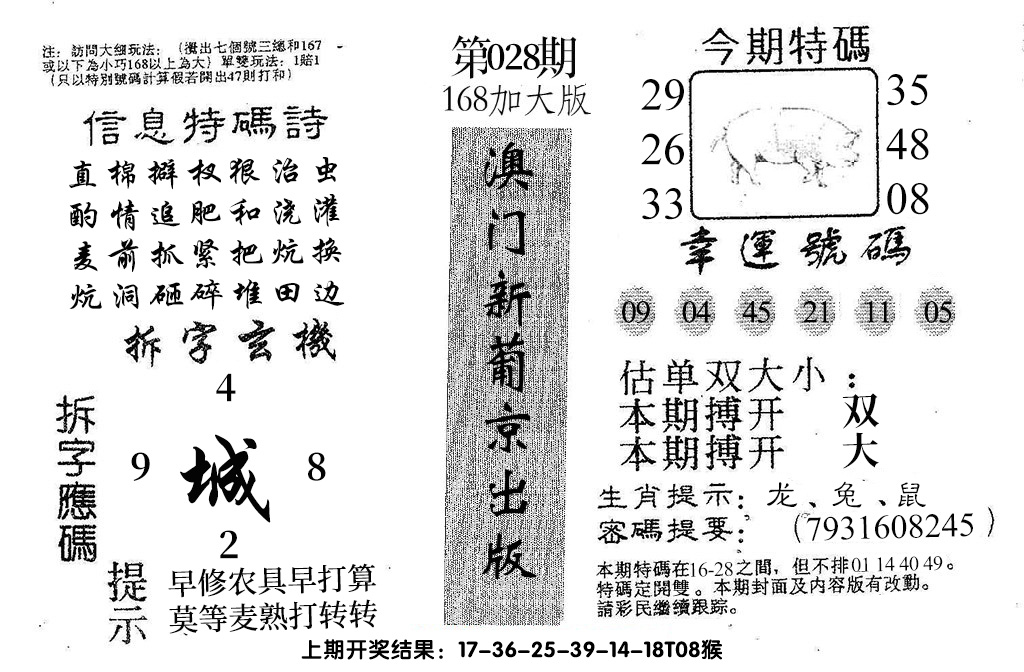 注：訪問大细玩法：（攪出七個號三總和167
或以下為小巧168以上為大）單雙玩法：1賠1
（只以特別號碼計算假若開出47則打和）
信息特碼詩
直棉擀杈狠治虫
酌情追肥和浇灌
麦前抓紧把炕换
炕洞砸碎堆田边
拆字玄機
拆字應碼
4
9 城 8
2
提示
早修农具早打算
莫等麦熟打转转
第028期
168加大版
澳门新葡京出版
今期特碼
29 35
26 48
33 08
幸運號碼
09 04 45 21 11 05
估单双大小：
本期搏开 双
本期搏开 大
生肖提示：龙、兔、鼠
密碼提要：（7931608245）
本期特碼在16-28之間，但不排01 14 40 49。
特碼定開雙。本期封面及内容版有改動。
請彩民繼續跟踪。
上期开奖结果：17-36-25-39-14-18T08猴